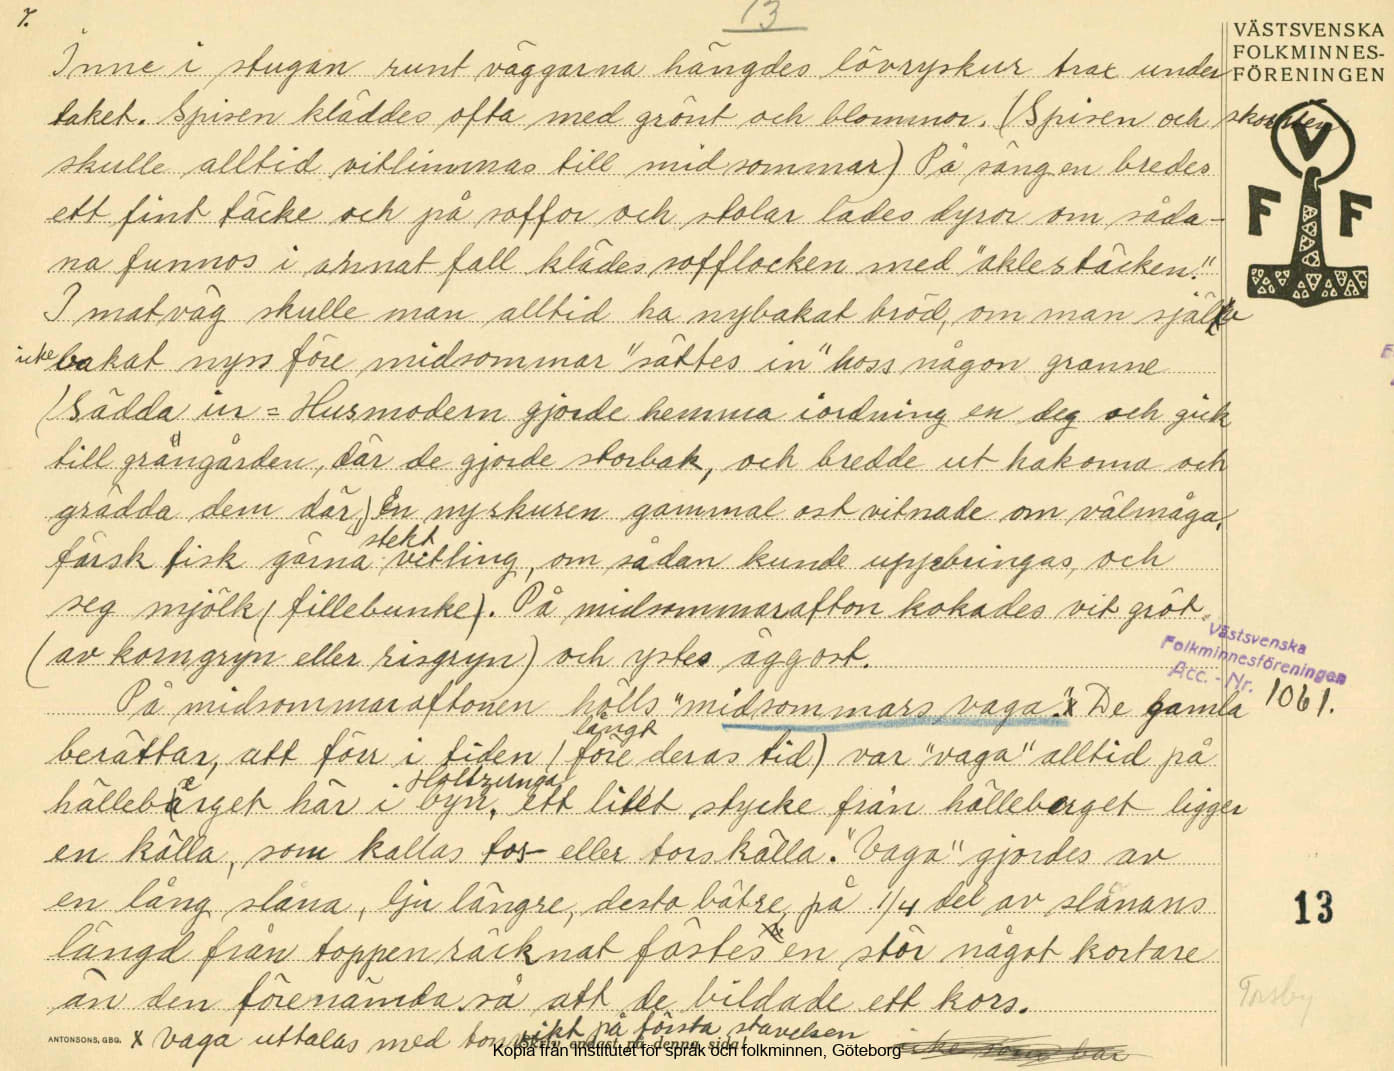 7.
13
VÄSTSVENSKA
FOLKMINNES-
FÖRENINGEN
V
F F
Inne i stugan runt väggarna hängdes lövryskur trax under
taket. Spisen kläddes ofta med grönt och blommor. (Spisen och skorsten
skulle alltid vitlimmas till midsommar) På sängen bredes
ett fint täcke och på soffor och stolar lades dynor om såda-
na funnos i annat fall klädes sofflocken med "åklestäcken."
I matväg skulle man alltid ha nybakat bröd, om man själv
icke bakat nyss före midsommar "sättes in" hoss någon granne
(Sädda in = Husmodern gjorde hemma iordning en deg och gick
till grängården, där de gjorde storbak, och bredde ut kakorna och
grädda dem där.) En nyskuren gammal ost vitnade om välmåga,
stekt
färsk fisk gärna vitling, om sådan kunde uppbringas, och
seg mjölk (fillebunke). På midsommarafton kokades vit gröt
(av korngryn eller risgryn) och ystes äggost.
Västsvenska
Folkminnesföreningen
Acc. - Nr. 1061.
På midsommaraftonen hölls "midsommars vaga". x De gamla
långt
berättar, att förr i tiden (före deras tid) var "vaga" alltid på
Holtzunga
hälleberget här i byn, ett litet stycke från hälleberget ligger
en källa, som kallas tos- eller torskälla. "Vaga" gjordes av
en lång slåna, lju längre, desto bätre, på 1/4 del av slånans
längd från toppen räcknat fästes en stör något kortare
än den förenämda så att de bildade ett kors.
13
Torsby
ANTONSONS, GBG.
x vaga uttalas med tonvikt på första stavelsen
Skriv endast på denna sida!
Kopia från Institutet för språk och folkminnen, Göteborg